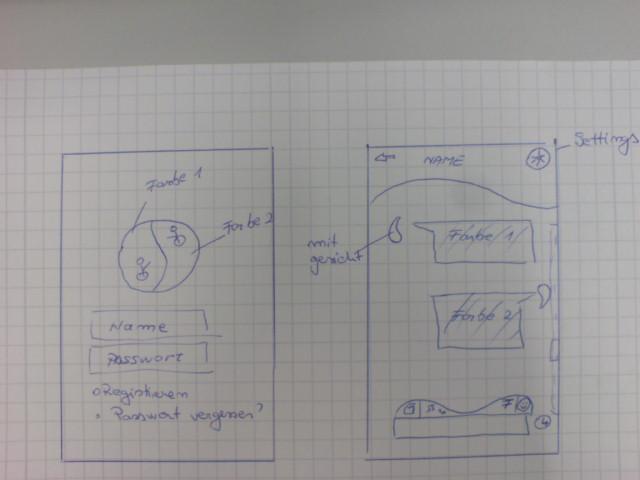 Farbe 1
Farbe 2
Name
Passwort
Registrieren
Passwort vergessen?
Settings
NAME
mit
gesicht
Farbe 1
Farbe 2